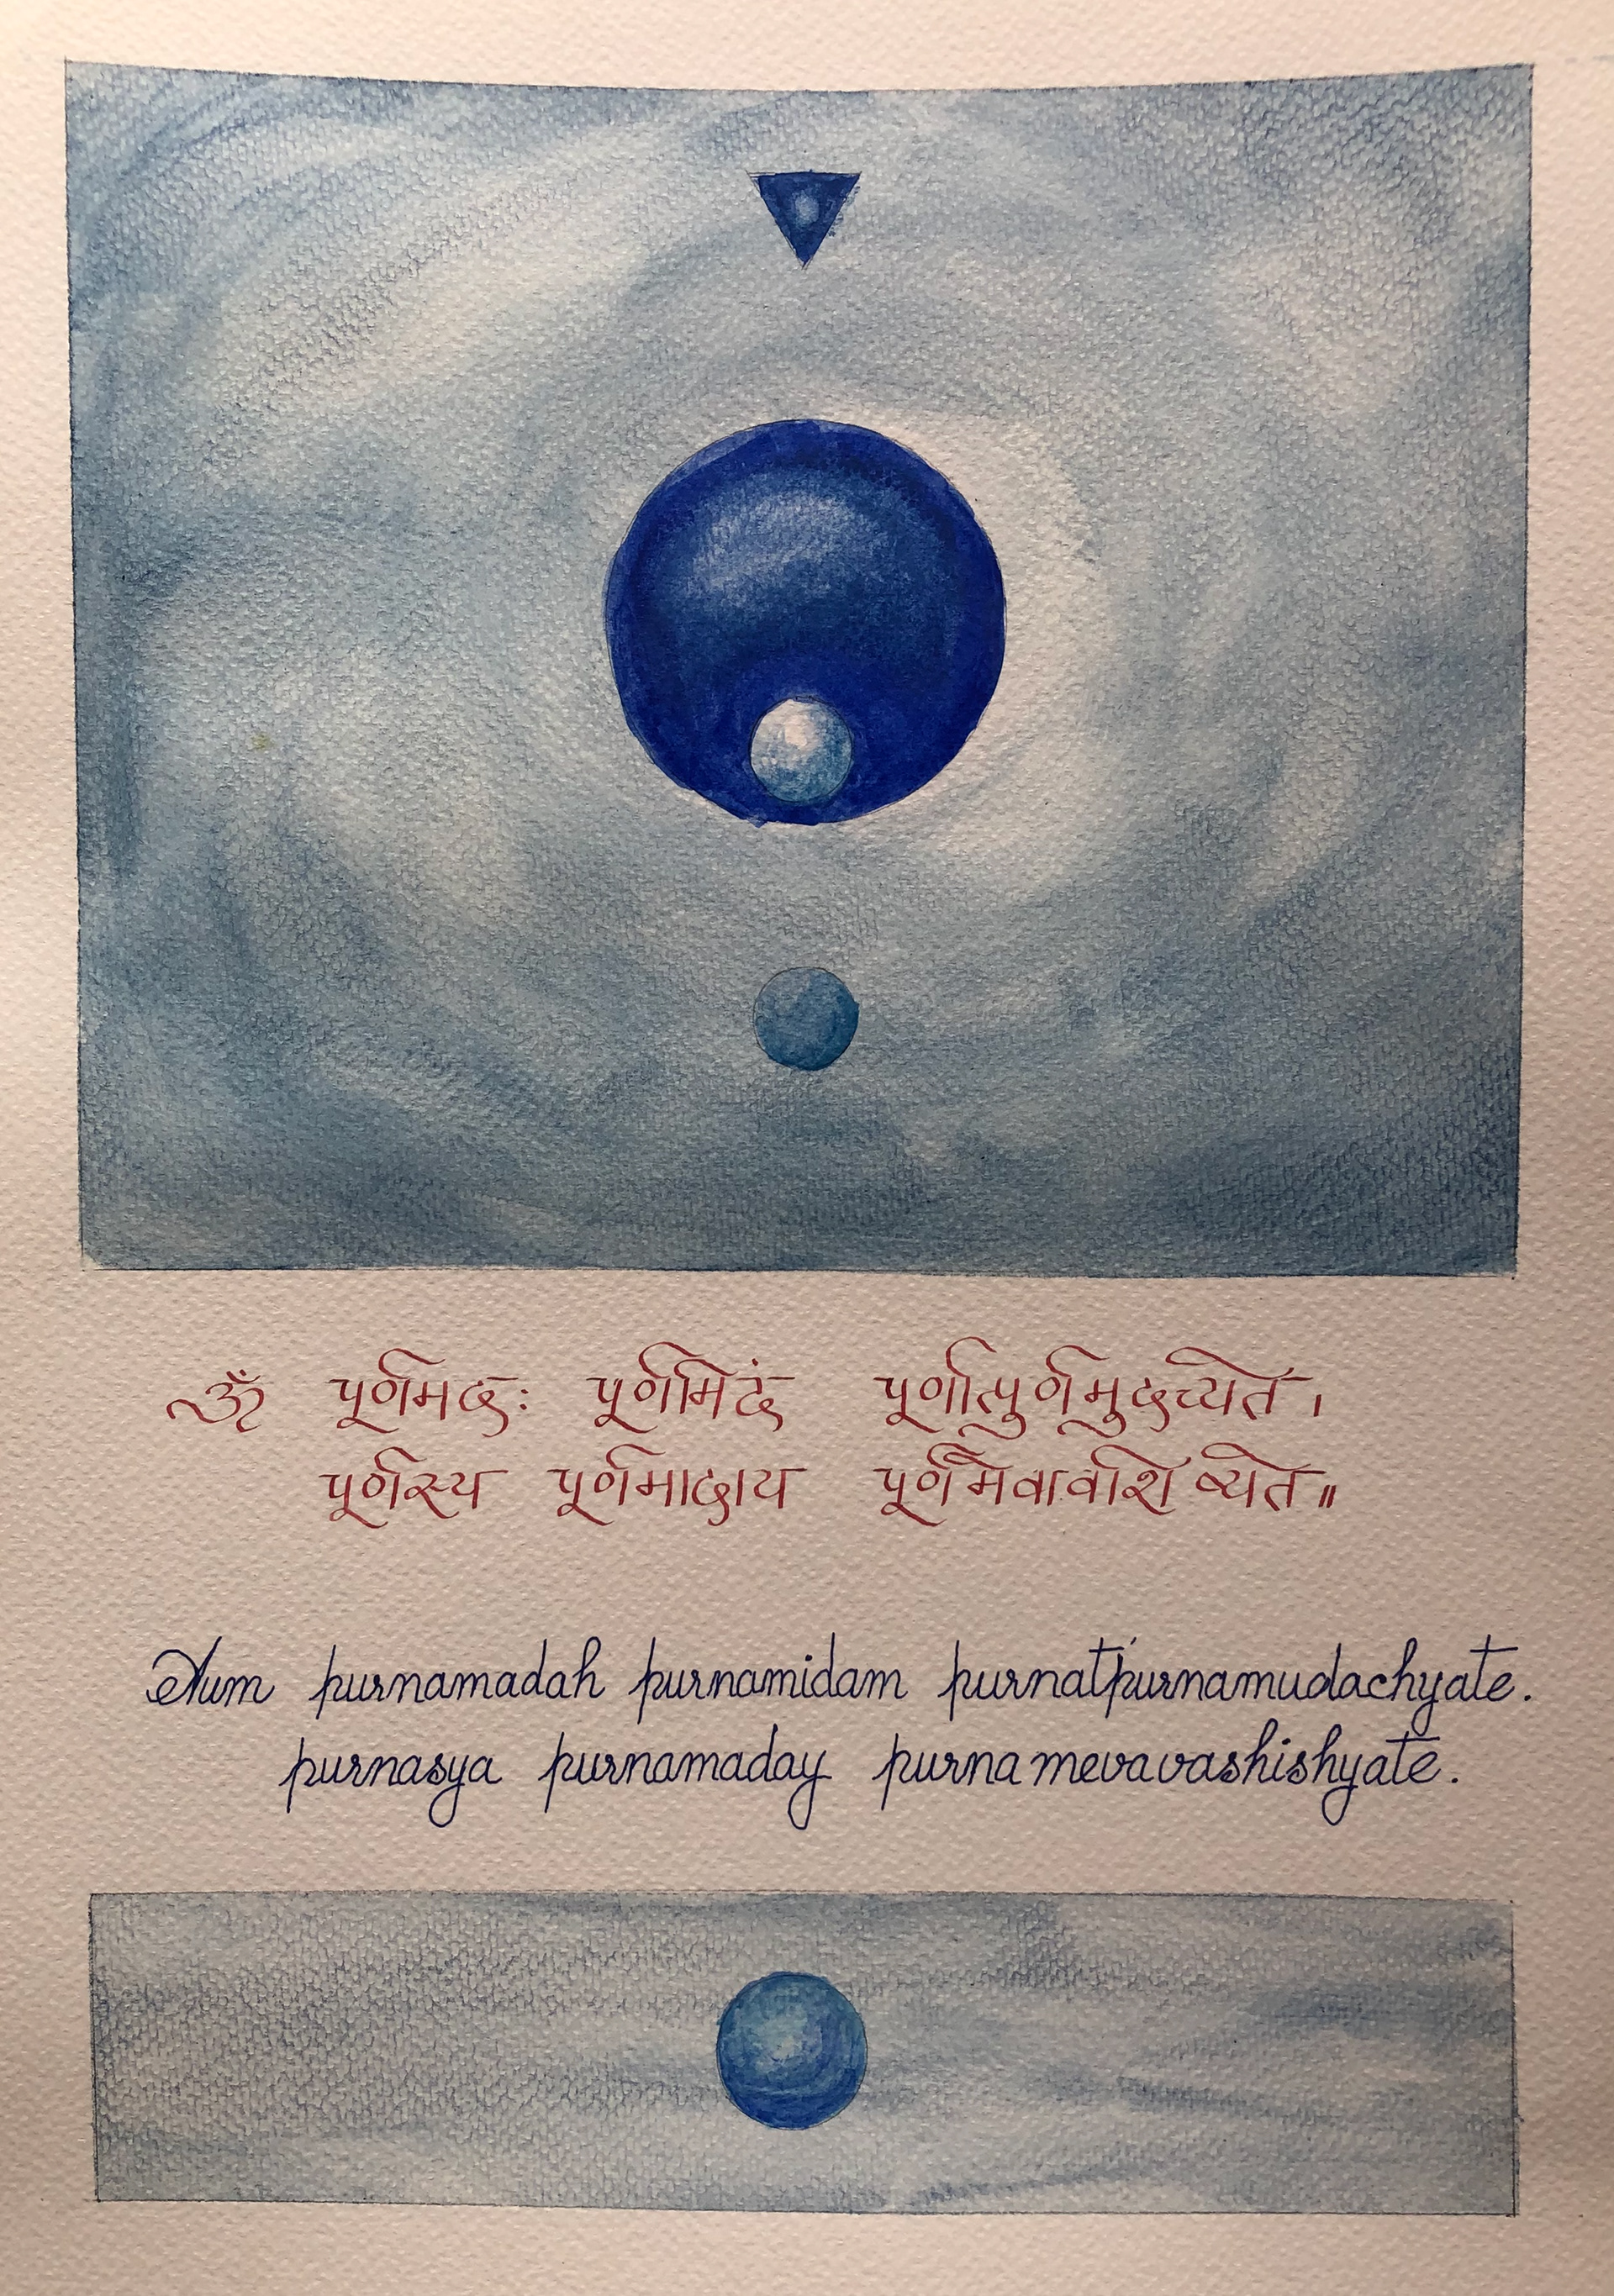 ॐ पूर्णमदः पूर्णमिदं पूर्णात्पुर्णमुदच्यते।
पूर्णस्य पूर्णमादाय पूर्णमेवावशिष्यते॥
Aum purnamadah purnamidam purnatpurnamudachyate.
purnasya purnamaday purnamevavashishyate.